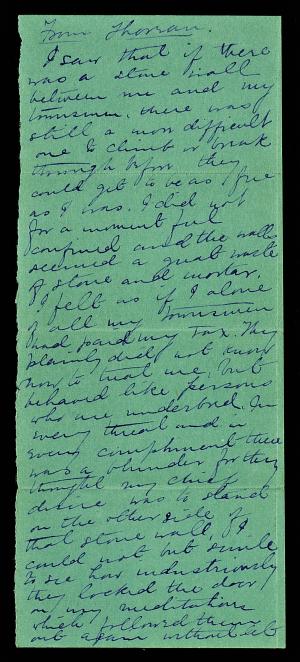 From Thoreau.
I saw that if there
was a stone wall
between me and my
townsmen, there was
still a more difficult
one to climb or break
through before they
could get to be as free
as I was. I did not
for a moment feel
confined and the walls
seemed a great waste
of stone and mortar.
I felt as if I alone
of all my townsmen
had paid my tax. They
plainly did not know
how to treat me, but
behaved like persons
who are underbred. In
every threat and in
every compliment there
was a blunder, for they
thought my chief
desire was to stand
on the other side of
that stone wall. I
could not but smile
to see how industriously
they locked the door
on my meditations
which followed them
out again without let